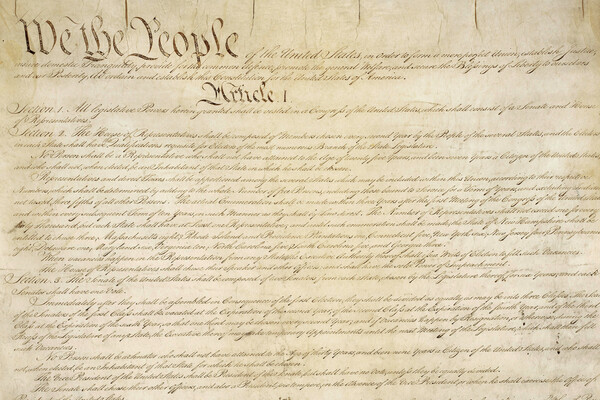 We the People of the United States, in Order to form a more perfect Union, establish Justice,
insure domestic Tranquility, provide for the common defence, promote the general Welfare, and secure the Blessings of Liberty to ourselves
and our Posterity, do ordain and establish this Constitution for the United States of America.
Article I
Section 1. All legislative Powers herein granted shall be vested in a Congress of the United States, which shall consist of a Senate and House
of Representatives.
Section 2. The House of Representatives shall be composed of Members chosen every second Year by the People of the several States, and the Electors
in each State shall have Qualifications requisite for Electors of the most numerous Branch of the State Legislature.
No Person shall be a Representative who shall not have attained to the Age of twenty five Years, and been seven Years a Citizen of the United States,
and who shall not, when elected, be an Inhabitant of that State in which he shall be chosen.
Representatives and direct Taxes shall be apportioned among the several States which may be included within this Union, according to their respective
Numbers, which shall be determined by adding to the whole Number of free Persons, including those bound to Service for a Term of Years, and excluding Indians
not taxed, three fifths of all other Persons. The actual Enumeration shall be made within three Years after the first Meeting of the Congress of the United States,
and within every subsequent Term of ten Years, in such Manner as they shall by Law direct. The Number of Representatives shall not exceed one for every
thirty Thousand, but each State shall have at Least one Representative; and until such enumeration shall be made, the State of New Hampshire shall be
entitled to chuse three, Massachusetts eight, Rhode Island and Providence Plantations one, Connecticut five, New York six, New Jersey four, Pennsylvania
eight, Delaware one, Maryland six, Virginia ten, North Carolina five, South Carolina five, and Georgia three.
When vacancies happen in the Representation from any State, the Executive Authority thereof shall issue Writs of Election to fill such Vacancies.
The House of Representatives shall chuse their Speaker and other Officers; and shall have the sole Power of Impeachment.
Section 3. The Senate of the United States shall be composed of two Senators from each State, chosen by the Legislature thereof, for six Years; and each
Senator shall have one Vote.
Immediately after they shall be assembled in Consequence of the first Election, they shall be divided as equally as may be into three Classes. The Seats
of the Senators of the first Class shall be vacated at the Expiration of the second Year, of the second Class at the Expiration of the fourth Year, and of the third
Class at the Expiration of the sixth Year, so that one third may be chosen every second Year; and if Vacancies happen by Resignation, or otherwise, during the
Recess of the Legislature of any State, the Executive thereof may make temporary Appointments until the next Meeting of the Legislature, which shall then fill
such Vacancies.
No Person shall be a Senator who shall not have attained to the Age of thirty Years, and been nine Years a Citizen of the United States, and who shall
not, when elected, be an Inhabitant of that State for which he shall be chosen.
The Vice President of the United States shall be President of the Senate, but shall have no Vote, unless they be equally divided.
The Senate shall chuse their other Officers, and also a President pro tempore, in the Absence of the Vice President, or when he shall exercise the Office of
President of the United States.